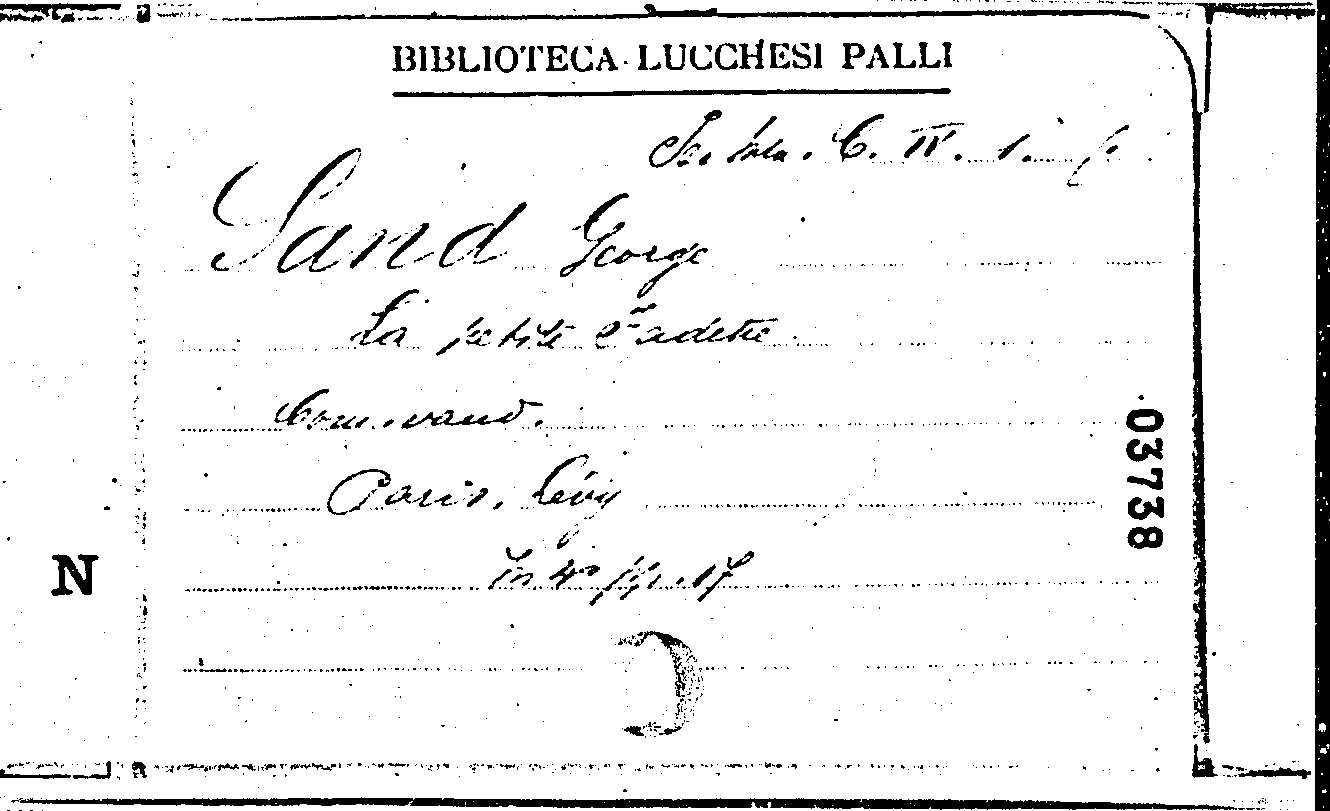 BIBLIOTECA LUCCHESI PALLI
C. IV. 1.
Sand George
La petite Fadette
Com. vaud.
Paris, Lévy
In 4° pp. 17
03738
N